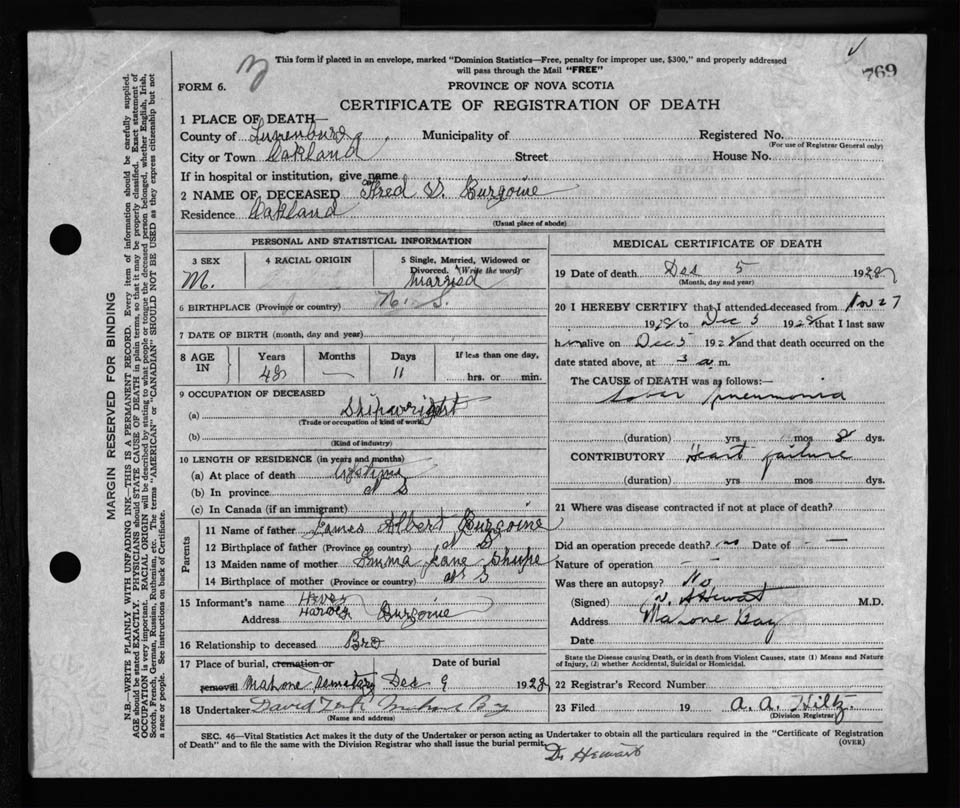 This form if placed in an envelope, marked "Dominion Statistics—Free, penalty for improper use, $300," and properly addressed
will pass through the Mail "FREE"
769
FORM 6.
PROVINCE OF NOVA SCOTIA
CERTIFICATE OF REGISTRATION OF DEATH
1 PLACE OF DEATH—
County of Lunenburg Municipality of Registered No.
(For use of Registrar General only)
City or Town Oakland Street House No.
If in hospital or institution, give name
2 NAME OF DECEASED Fred V. Burgoine
Residence Oakland
(Usual place of abode)
PERSONAL AND STATISTICAL INFORMATION
3 SEX 4 RACIAL ORIGIN 5 Single, Married, Widowed or
Divorced. (Write the word)
M. married
6 BIRTHPLACE (Province or country) N. S.
7 DATE OF BIRTH (month, day and year)
8 AGE IN Years Months Days If less than one day,
48 — 11 hrs. or min.
9 OCCUPATION OF DECEASED
(a) Shipwright
(Trade or occupation or kind of work)
(b)
(Kind of industry)
10 LENGTH OF RESIDENCE (in years and months)
(a) At place of death lifetime
(b) In province N S
(c) In Canada (if an immigrant)
Parents
11 Name of father James Albert Burgoine
12 Birthplace of father (Province or country) N S
13 Maiden name of mother Emma Jane Shupe
14 Birthplace of mother (Province or country) N S
15 Informant's name Harvey
Harvey Burgoine
Address
16 Relationship to deceased Bro
17 Place of burial, cremation or Date of burial
removal Mahone Semetary Dec 9 1928
18 Undertaker David Mahone Bay
(Name and address)
MEDICAL CERTIFICATE OF DEATH
19 Date of death Dec 5 1928
(Month, day and year)
20 I HEREBY CERTIFY that I attended deceased from Nov 27
1928 to Dec 5 1928 that I last saw
him alive on Dec 5 1928 and that death occurred on the
date stated above, at 3 a m.
The CAUSE of DEATH was as follows:—
Lobar pneumonia
(duration) yrs. mos 8 dys.
CONTRIBUTORY Heart failure
(duration) yrs. mos. dys.
21 Where was disease contracted if not at place of death?
Did an operation precede death? no Date of — —
Nature of operation — —
Was there an autopsy? No
(Signed) Hewat M.D.
Address Mahone Bay
Date
State the Disease causing Death, or in death from Violent Causes, state (1) Means and Nature
of Injury, (2) whether Accidental, Suicidal or Homicidal.
22 Registrar's Record Number
23 Filed 19 A. A. Hiltz.
(Division Registrar)
SEC. 46—Vital Statistics Act makes it the duty of the Undertaker or person acting as Undertaker to obtain all the particulars required in the "Certificate of Registration
of Death" and to file the same with the Division Registrar who shall issue the burial permit.
(OVER)
Dr Hewat
MARGIN RESERVED FOR BINDING
N.B.—WRITE PLAINLY WITH UNFADING INK—THIS IS A PERMANENT RECORD. Every item of information should be carefully supplied.
AGE should be stated EXACTLY. PHYSICIANS should STATE CAUSE OF DEATH in plain terms, so that it may be properly classified. Exact statement of
OCCUPATION is very important. RACIAL ORIGIN will be described by stating to what people or tongue the deceased person belonged, whether English, Irish,
Scotch, French, German, Russian, Ruthenian, etc. The terms "AMERICAN" or "CANADIAN" SHOULD NOT BE USED as they express citizenship but not
a race or people. See instructions on back of Certificate.